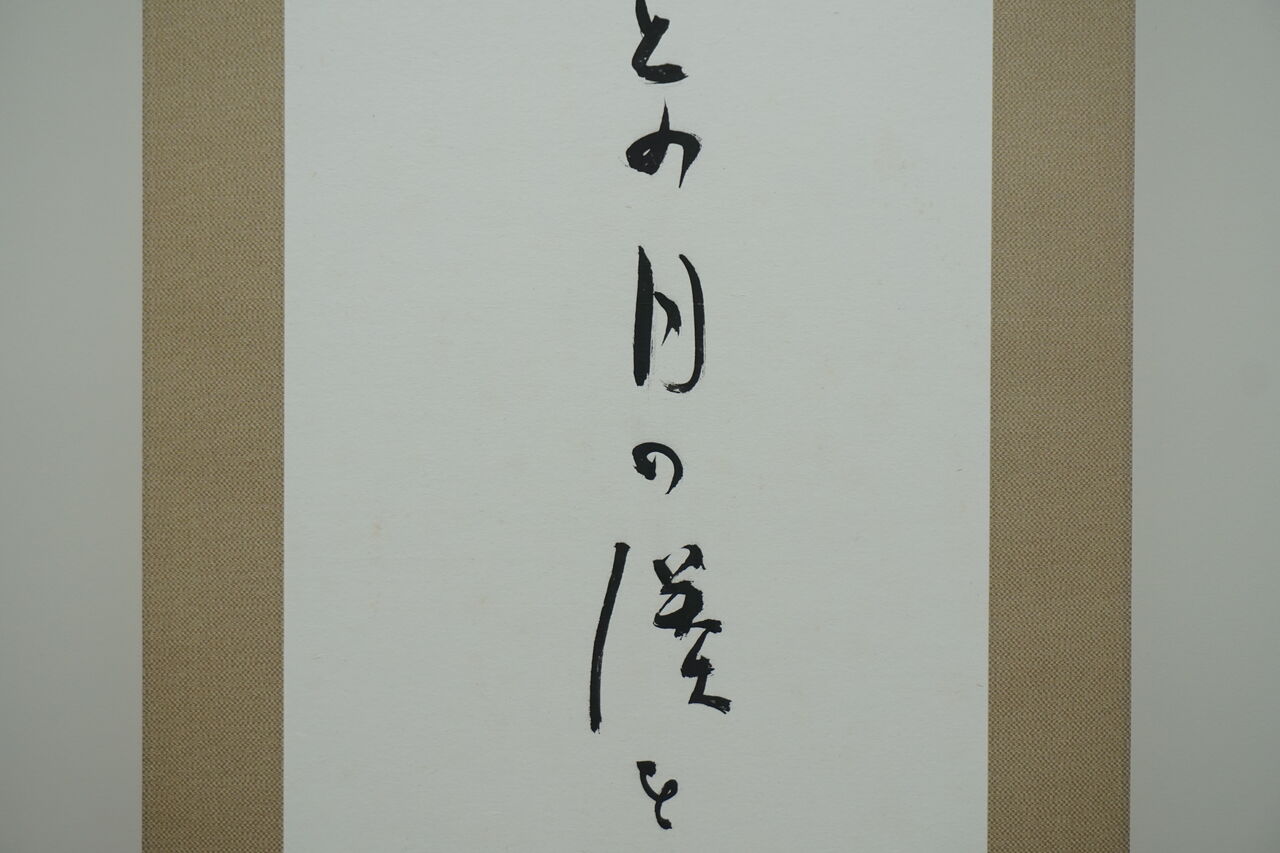 との月の港を